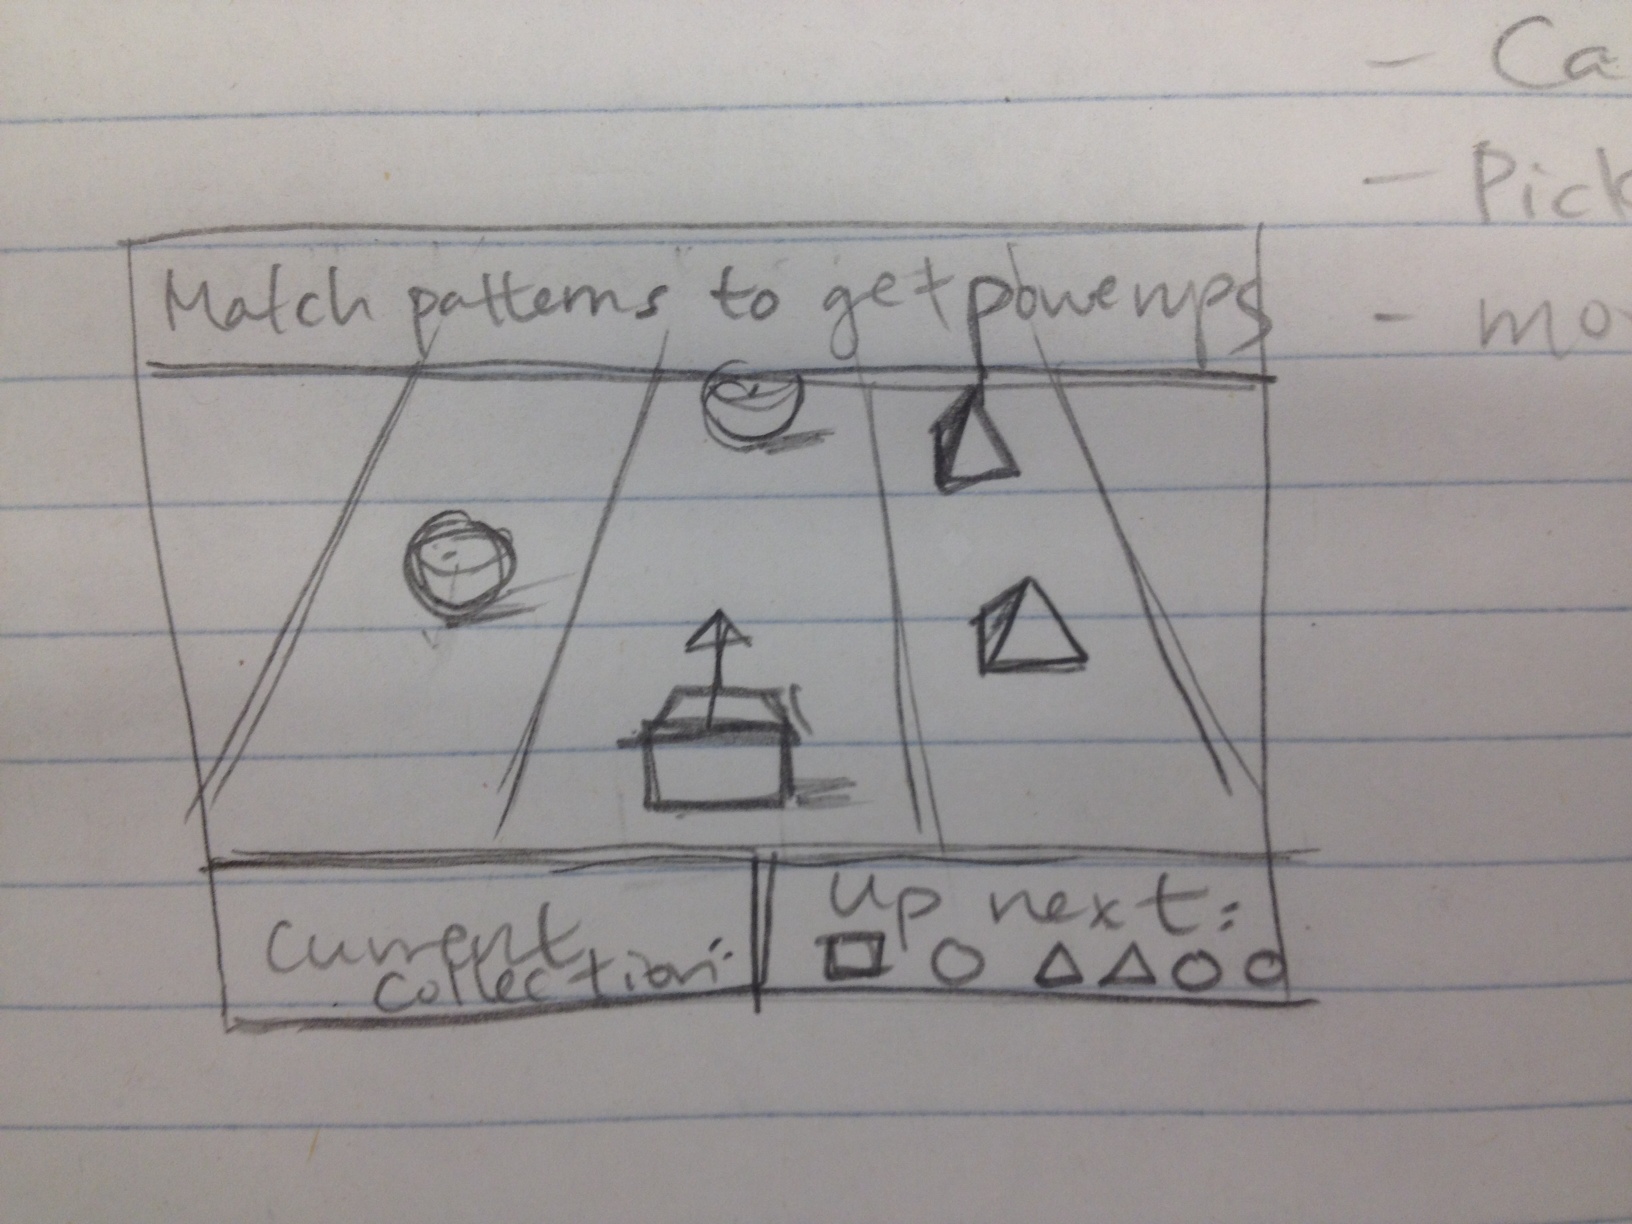 Match patterns to get powerups
Current
Collection:
Up next:
- Ca
- Pick
- mo